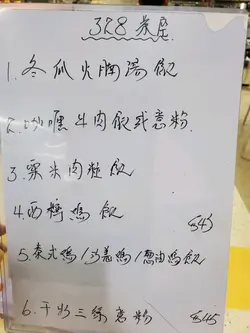 328 茶座
1. 冬瓜火腩湯飯
2. 咖喱牛肉飯或意粉
3. 粟米肉粒飯
4. 西檸鸡飯
$43
5. 泰式鸡/沙姜鸡/葱油鸡飯
6. 干炒三絲意粉 $45